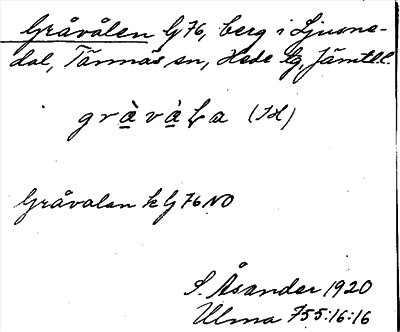 Gråvålen G 76, berg i Ljusne-
dal, Tännäs sn, Hede tg, Jämtl.
gràvàLa (IH)
Gråvalen k G 76 NO
S. Åsander 1920
Ulma 755:16:16